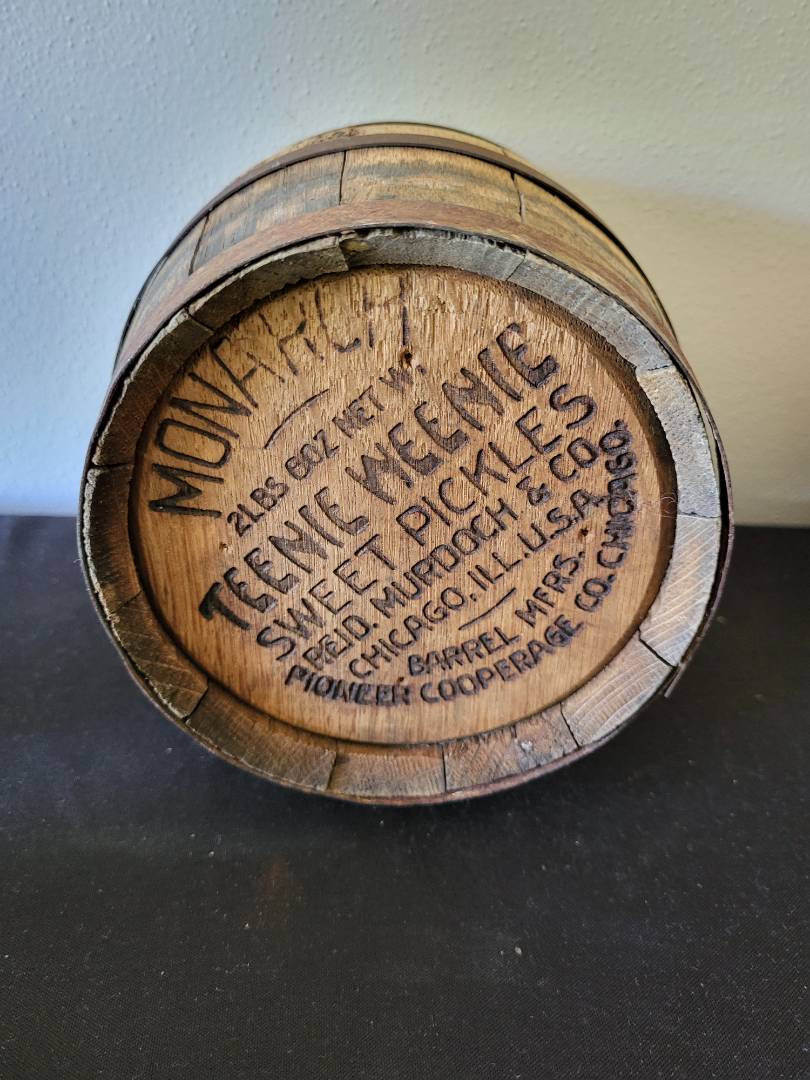 MONARCH
2LBS 8OZ NET WT.
TEENIE WEENIE
SWEET PICKLES
REID. MURDOCH & CO.
CHICAGO. ILL. U.S.A.
BARREL MFRS.
PIONEER COOPERAGE CO. CHICAGO.